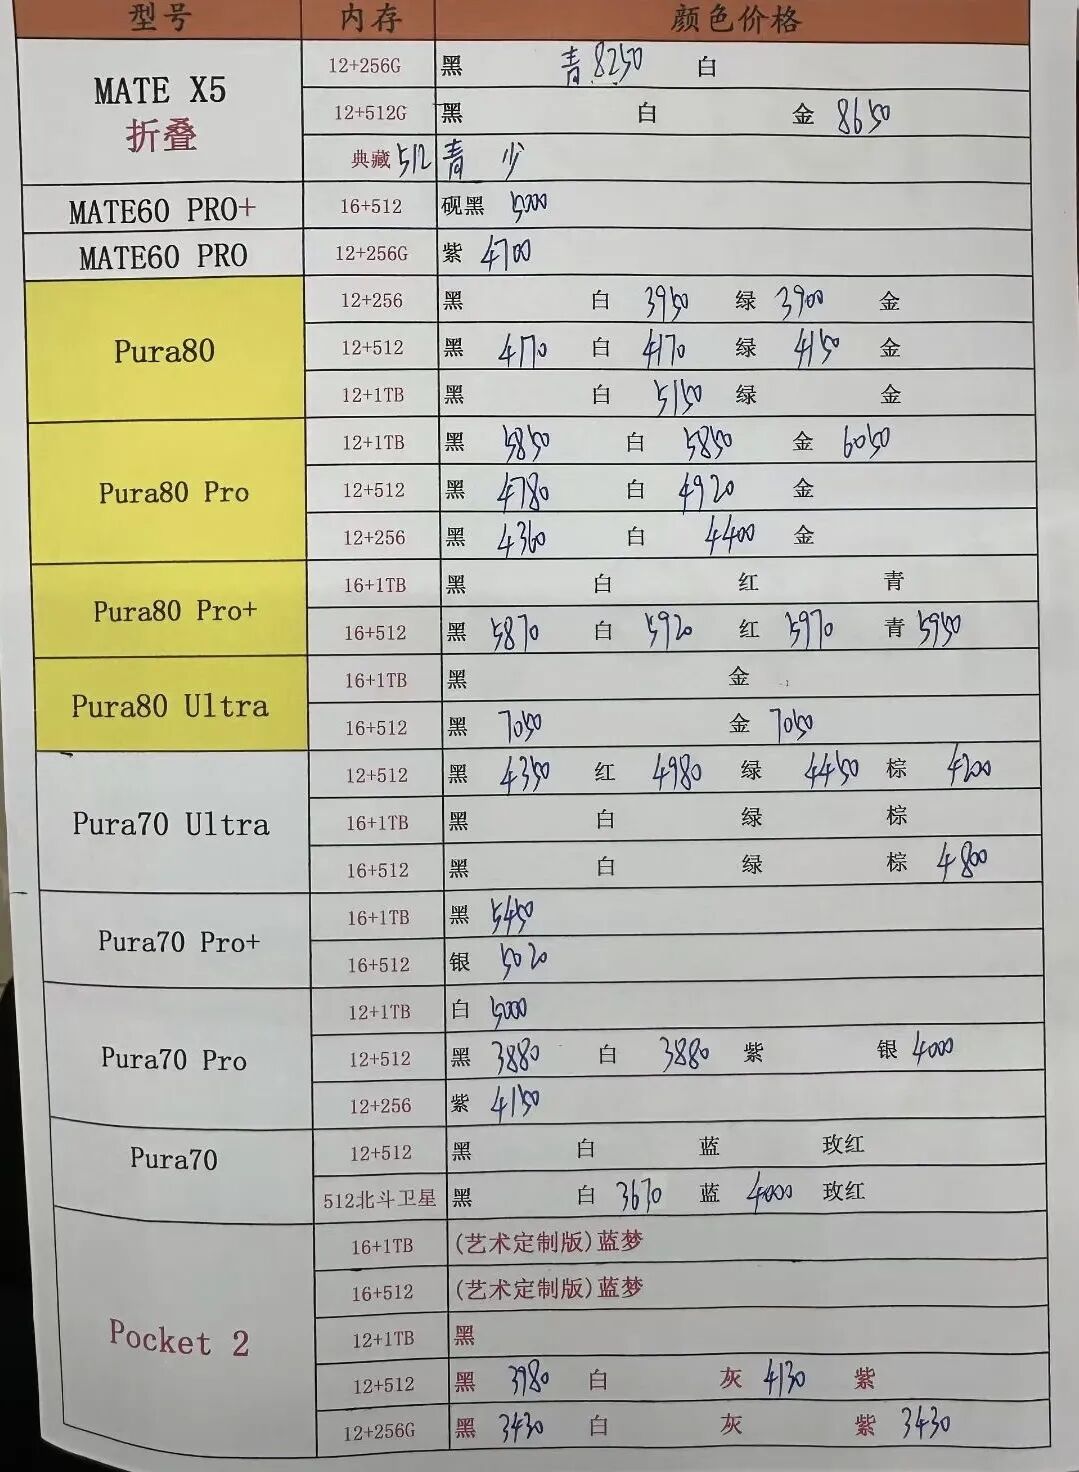 型号 内存 颜色价格
MATE X5 折叠 12+256G 黑 青 8250 白
12+512G 黑 白 金 8650
典藏 512 青 少
MATE60 PRO+ 16+512 砚黑 5000
MATE60 PRO 12+256G 紫 4700
Pura80 12+256 黑 白 3950 绿 3900 金
12+512 黑 4170 白 4170 绿 4150 金
12+1TB 黑 白 5150 绿 金
Pura80 Pro 12+1TB 黑 5850 白 5850 金 6050
12+512 黑 4780 白 4920 金
12+256 黑 4360 白 4400 金
Pura80 Pro+ 16+1TB 黑 白 红 青
16+512 黑 5870 白 5920 红 5970 青 5950
Pura80 Ultra 16+1TB 黑 金
16+512 黑 7050 金 7050
Pura70 Ultra 12+512 黑 4350 红 4980 绿 4450 棕 4200
16+1TB 黑 白 绿 棕
16+512 黑 白 绿 棕 4800
Pura70 Pro+ 16+1TB 黑 5450
16+512 银 5020
Pura70 Pro 12+1TB 白 5000
12+512 黑 3880 白 3880 紫 银 4000
12+256 紫 4150
Pura70 12+512 黑 白 蓝 玫红
512北斗卫星 黑 白 3670 蓝 4000 玫红
Pocket 2 16+1TB (艺术定制版)蓝梦
16+512 (艺术定制版)蓝梦
12+1TB 黑
12+512 黑 3980 白 灰 4130 紫
12+256G 黑 3430 白 灰 紫 3430